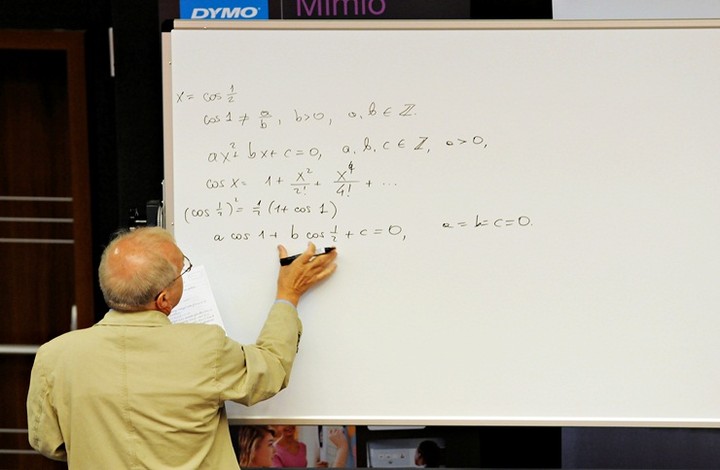 DYMO Mimio
x = cos 1/2
cos 1 ≠ a/b, b>0, a, b ∈ ℤ.
ax² + bx + c = 0, a, b, c ∈ ℤ, a > 0,
cos x = 1 + x²/2! + x⁴/4! + ...
(cos 1/2)² = 1/2 (1 + cos 1)
a cos 1 + b cos 1/2 + c = 0, a = b = c = 0.